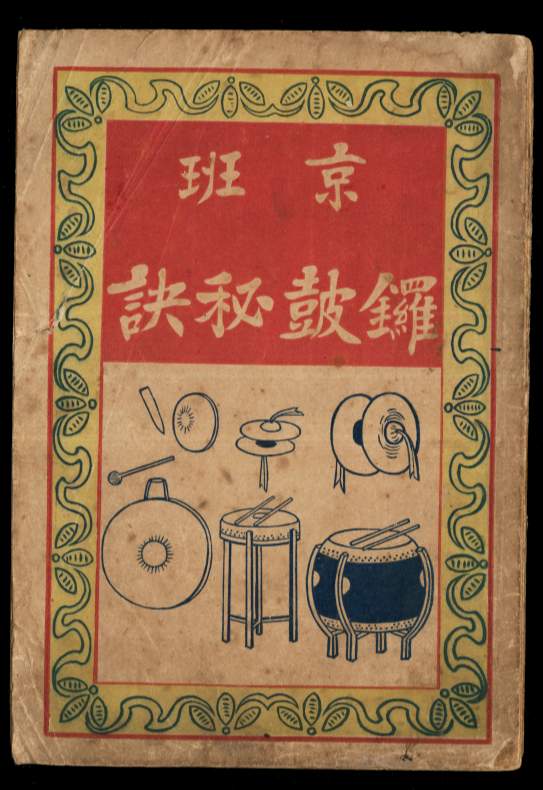 京班
鑼鼓秘訣